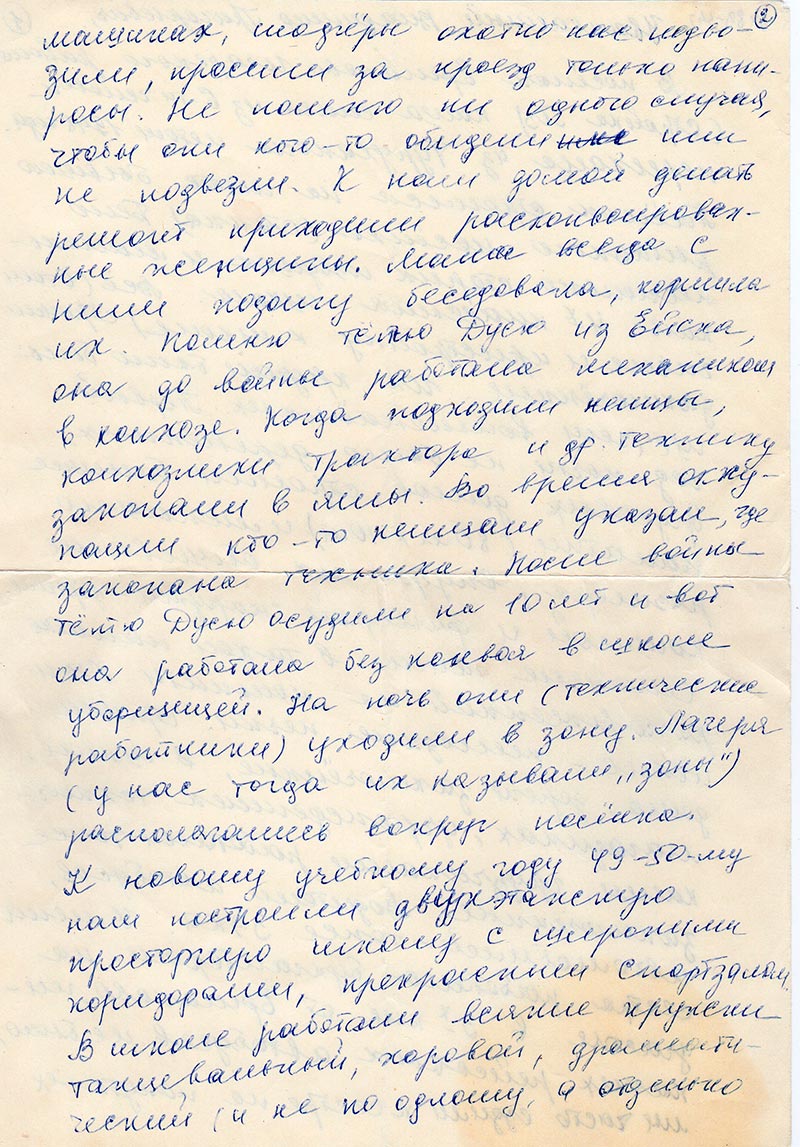 2
машинах, шофёры охотно нас подво-
зили, просили за проезд только папи-
росы. Не помню ни одного случая,
чтобы они кого-то обидели или
не подвезли. К нам домой делать
ремонт приходили расконвоирован-
ные женщины. Мама всегда с
ними подолгу беседовала, кормила
их. Помню тётю Дусю из Ейска,
она до войны работала механиком
в колхозе. Когда подходили немцы,
колхозники трактора и др. технику
закопали в ямы. Во время окку-
пации кто-то немцам указал, где
закопана техника. После войны
тётю Дусю осудили на 10 лет и вот
она работала без конвоя в школе
уборщицей. На ночь они (технические
работники) уходили в зону. Лагеря
(у нас тогда их называли „зоны")
располагались вокруг посёлка.
К новому учебному году 49-50-му
нам построили двухэтажную
просторную школу с широкими
коридорами, прекрасным спортзалом.
В школе работали всякие кружки
танцевальный, хоровой, драмати-
ческий (и не по одному, а отдельно